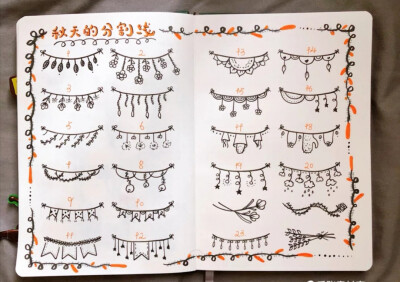 秋天的分割线
1 2
3 4
5 6
7 8
9 10
11 12
13 14
15 16
17 18
19 20
23